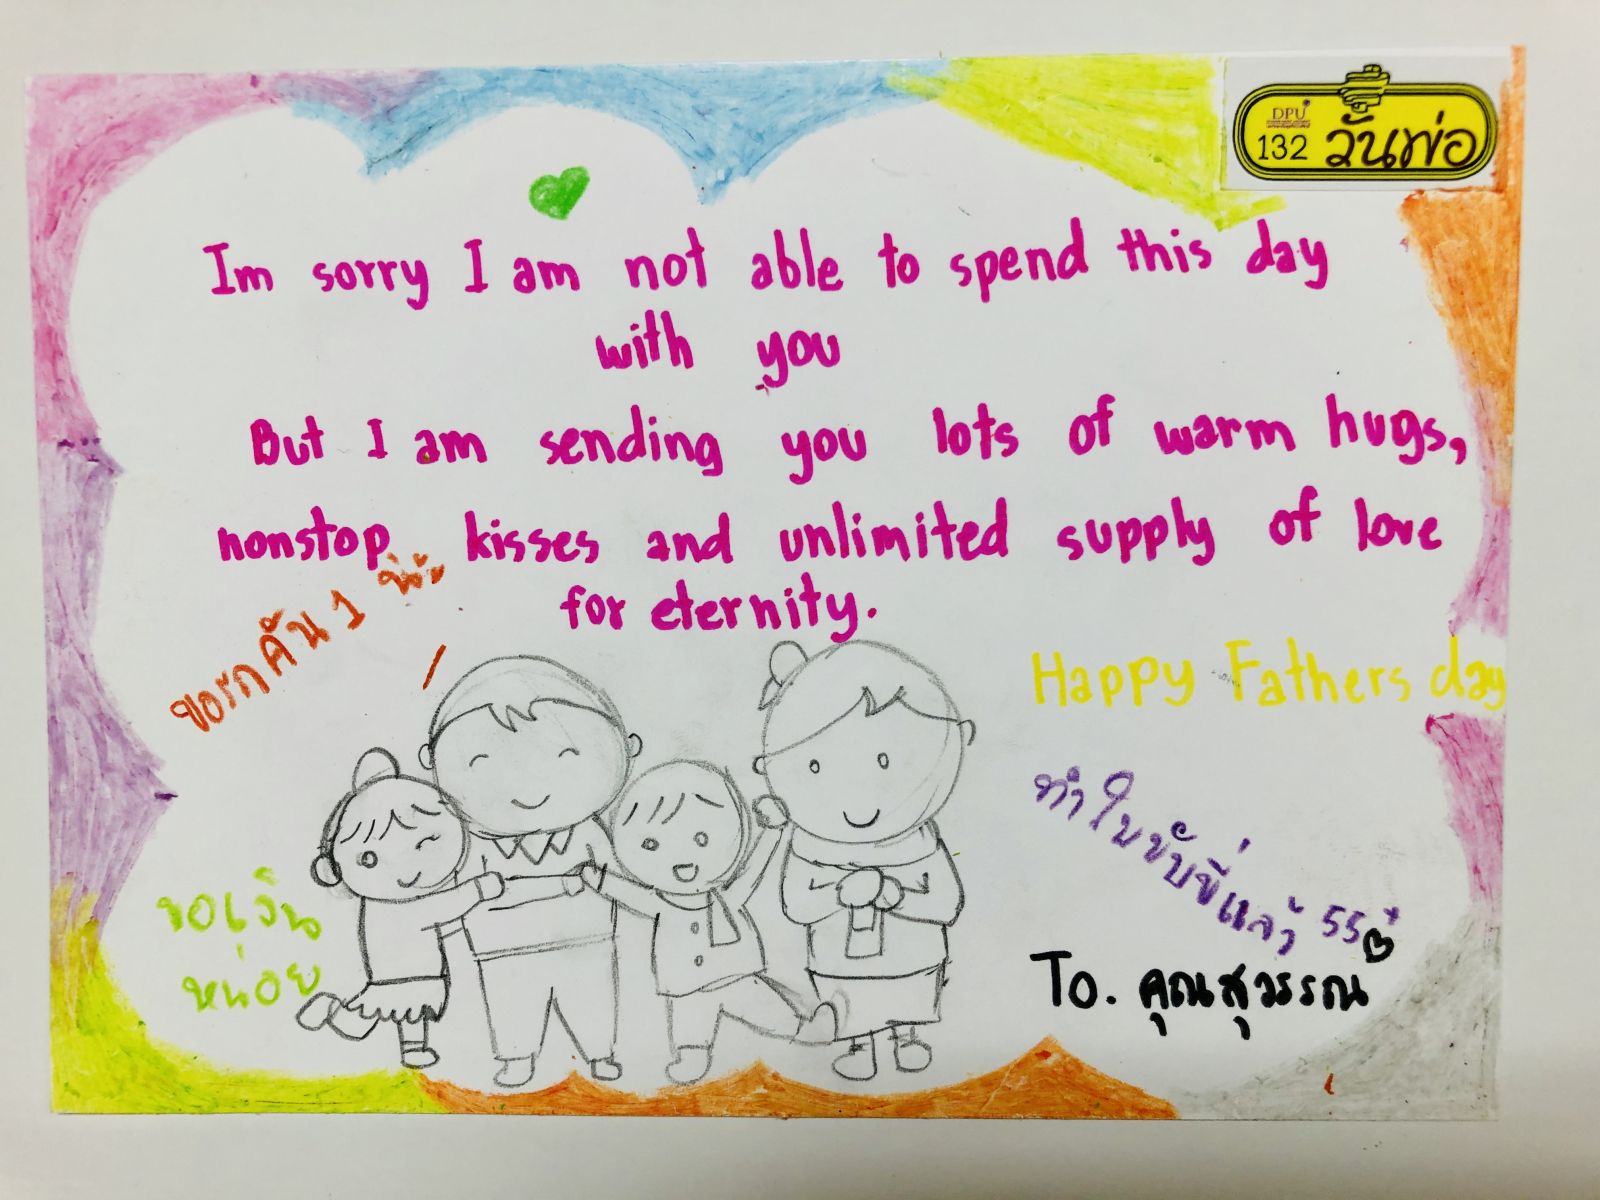 DPU
132 วันพ่อ
Im sorry I am not able to spend this day
with you
But I am sending you lots of warm hugs,
nonstop kisses and unlimited supply of love
for eternity.
ขอรถคัน 1
Happy Fathers day
ทำใบขับขี่แล้ว 555+
ขอเงิน
หน่อย
To. คุณสุวรรณ